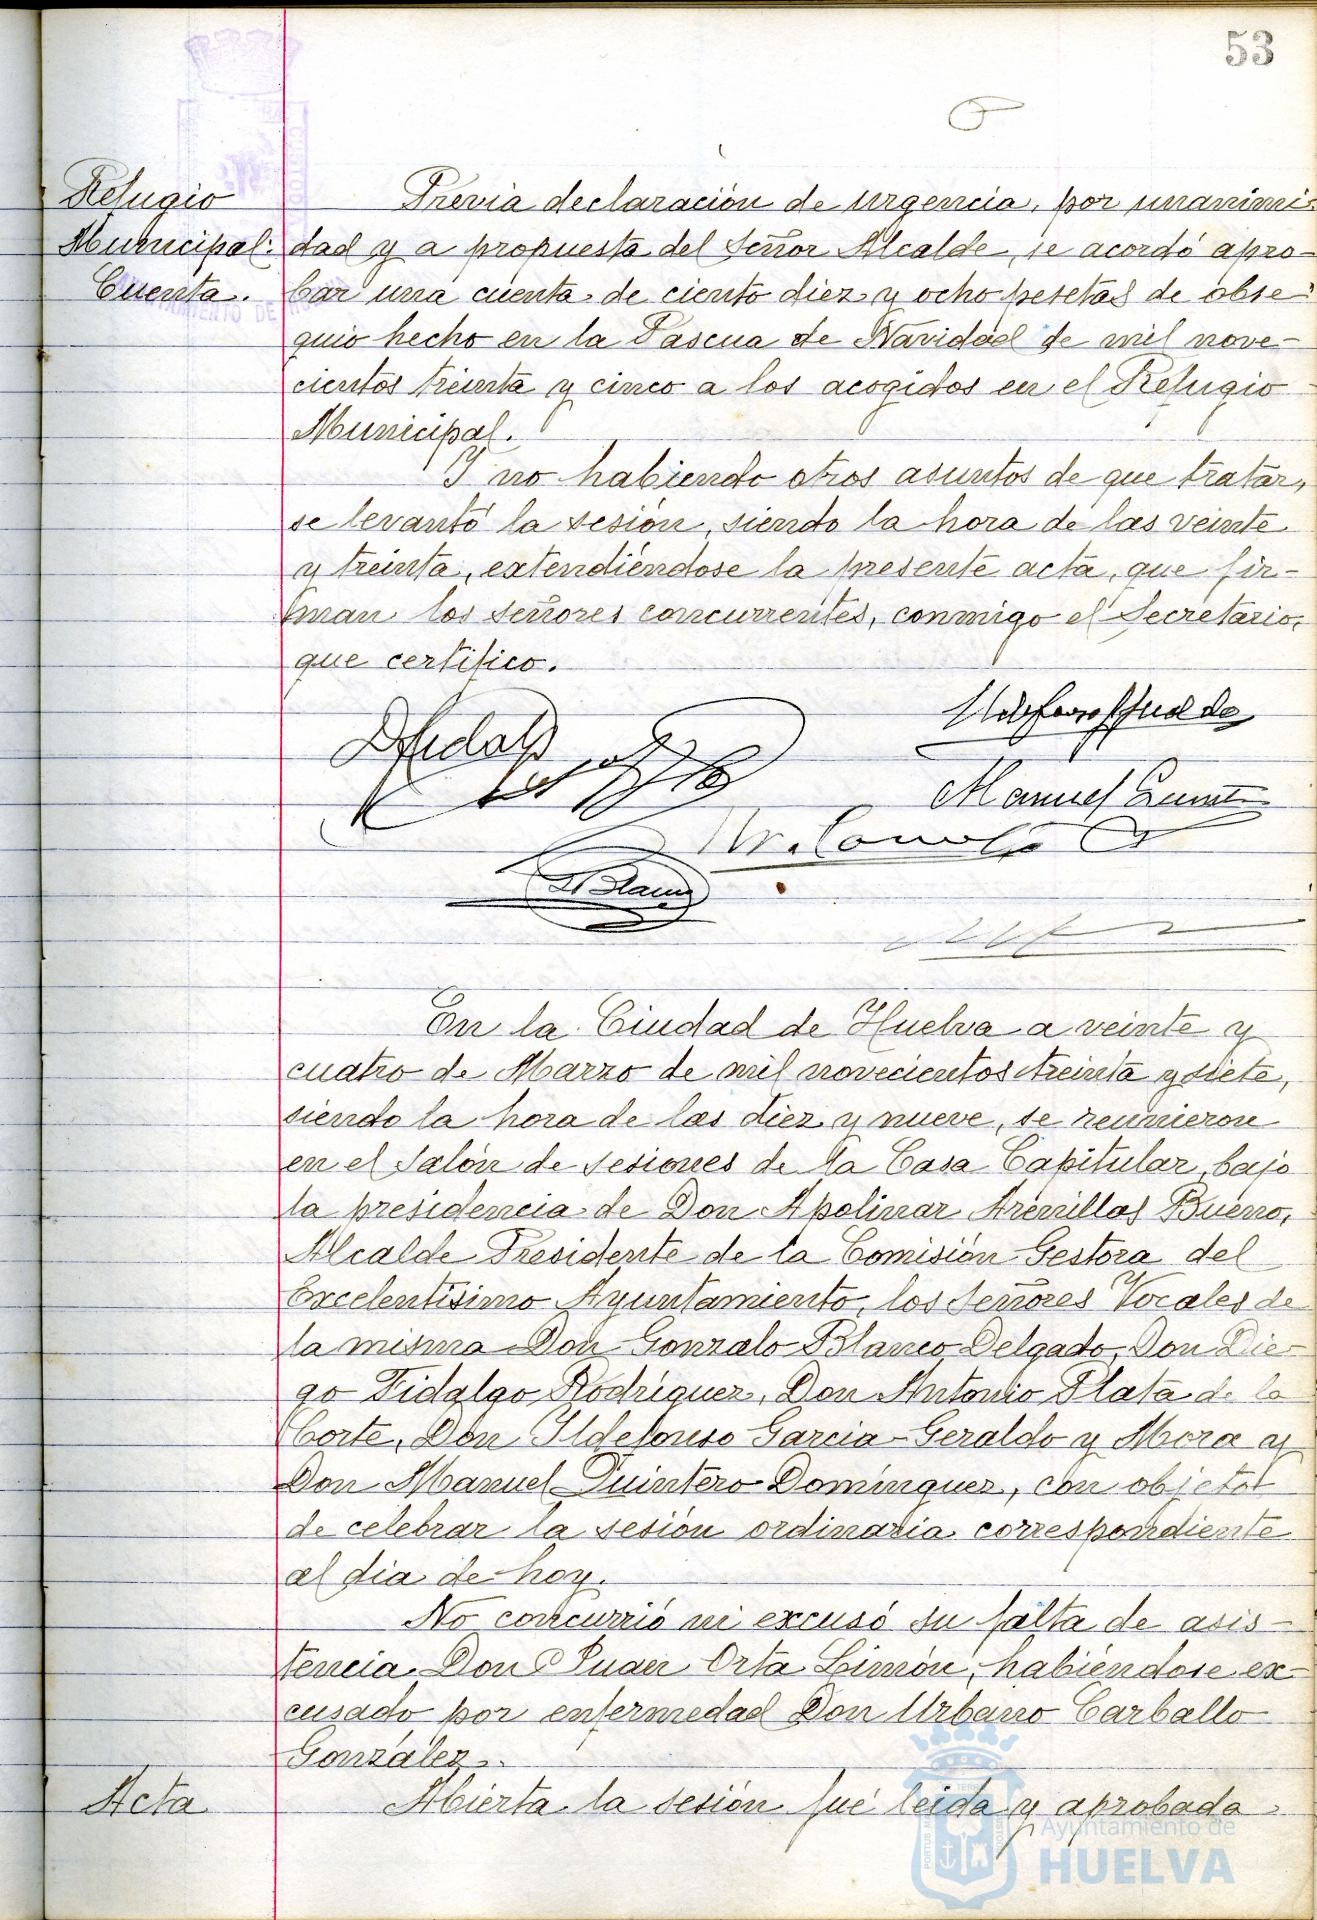 53
Refugio
Municipal:
Cuenta.
Previa declaración de urgencia, por unanimi-
dad y a propuesta del Señor Alcalde, se acordó apro-
bar una cuenta de ciento diez y ocho pesetas de obse-
quio hecho en la Pascua de Navidad de mil nove-
cientos treinta y cinco a los acogidos en el Refugio
Municipal.
Y no habiendo otros asuntos de que tratar,
se levantó la sesión, siendo la hora de las veinte
y treinta, extendiéndose la presente acta, que fir-
man los señores concurrentes, conmigo el Secretario,
que certifico.
Manuel
Blanco
En la Ciudad de Huelva a veinte y
cuatro de Marzo de mil novecientos treinta y siete,
siendo la hora de las diez y nueve, se reunieron
en el salón de sesiones de la Casa Capitular, bajo
la presidencia de Don Apolinar Arenillas Bueno,
Alcalde Presidente de la Comisión Gestora del
Excelentísimo Ayuntamiento, los Señores Vocales de
la misma Don Gonzalo Blanco Delgado, Don Die-
go Fidalgo Rodríguez, Don Antonio Plata de la
Corte, Don Ildefonso Garcia-Geraldo y Mora y
Don Manuel Quintero Domínguez, con objeto
de celebrar la sesión ordinaria correspondiente
al dia de hoy.
No concurrió ni excusó su falta de asis-
tencia Don Juan Orta Limón, habiéndose ex-
cusado por enfermedad Don Urbano Carballo
González.
Acta
Abierta la sesión fué leida y aprobada
Ayuntamiento de
HUELVA